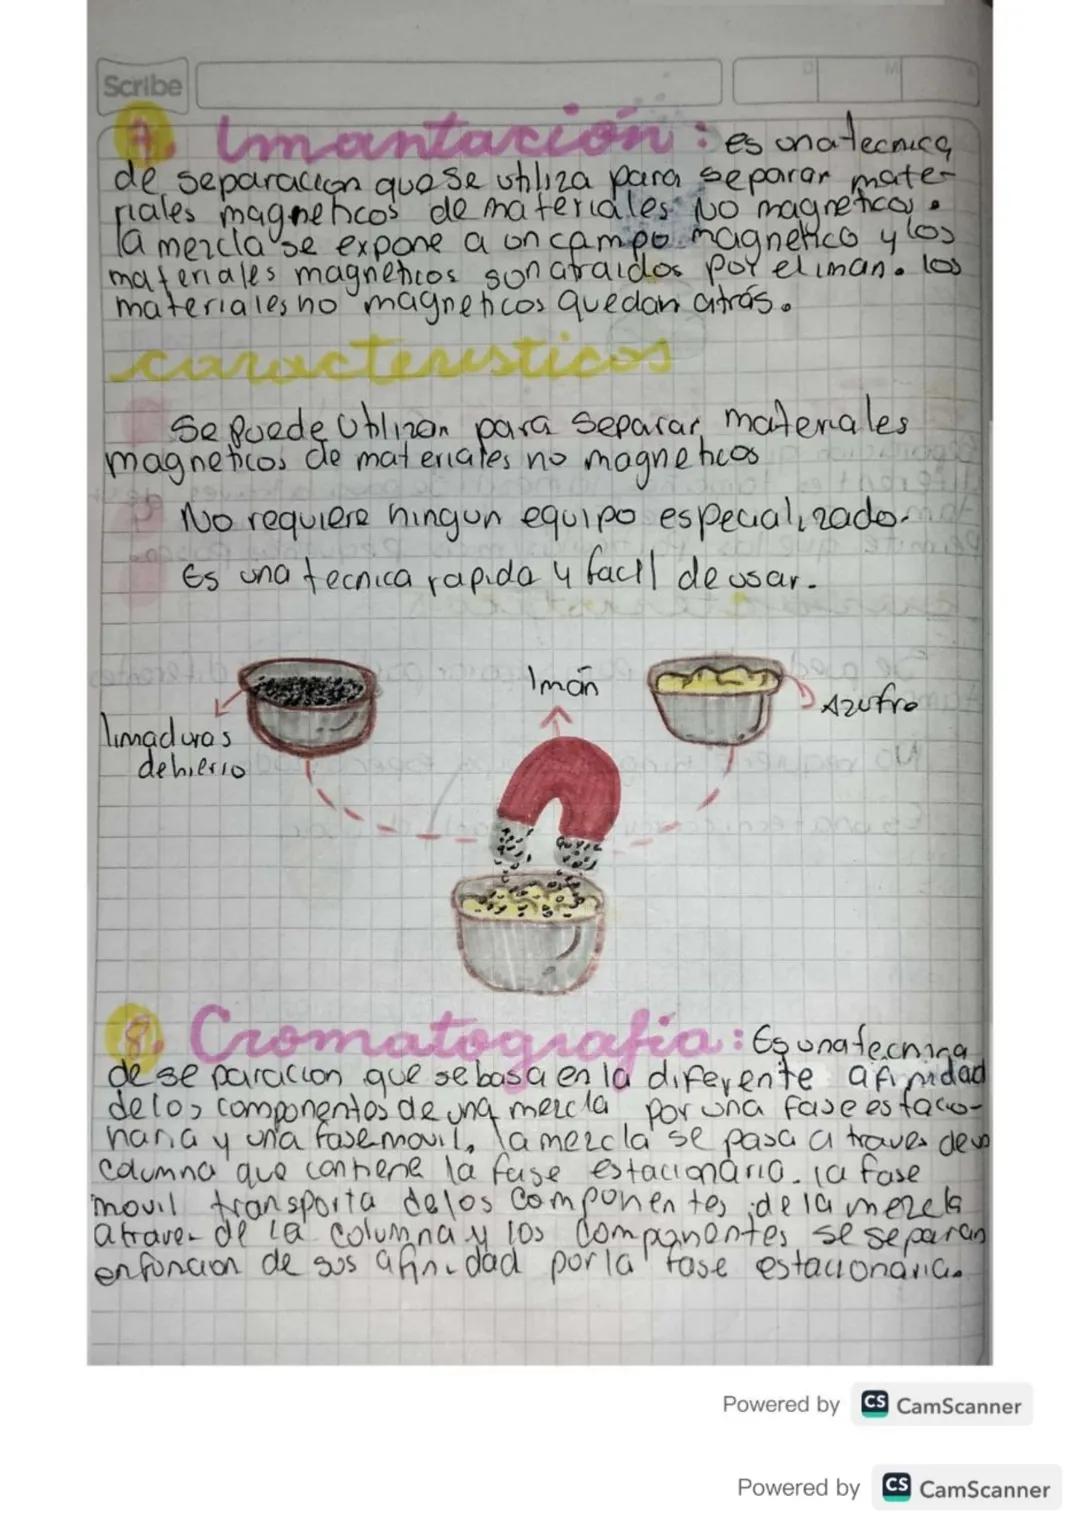 Scribe
D M A
7. Imantación: es una tecnica
de separacion que se utiliza para separar mate-
riales magneticos de materiales No magneticos.
la mezcla se expone a un campo magnetico y los
materiales magneticos son atraidos por el iman. los
materiales no magneticos quedan atrás.
caracteristicas
Se puede Utilizar para separar materiales
magneticos de materiales no magneticos
No requiere ningun equipo especializado.
Es una tecnica rapida y facil de usar.
limaduras
de hierro
Imán
Azufre
8. Cromatografia: Es una tecnica
de separacion que se basa en la diferente afinidad
de los componentos de una mezcla por una fase estacio-
naria y una fase movil, la mezcla se pasa a traves de
columna que contiene la fase estacionaria. la fase
movil transporta de los componentes de la mezcla
a traves de la columna y los componentes se separan
en funcion de sus afinidad por la fase estacionaria.
Powered by CS CamScanner
Powered by CS CamScanner